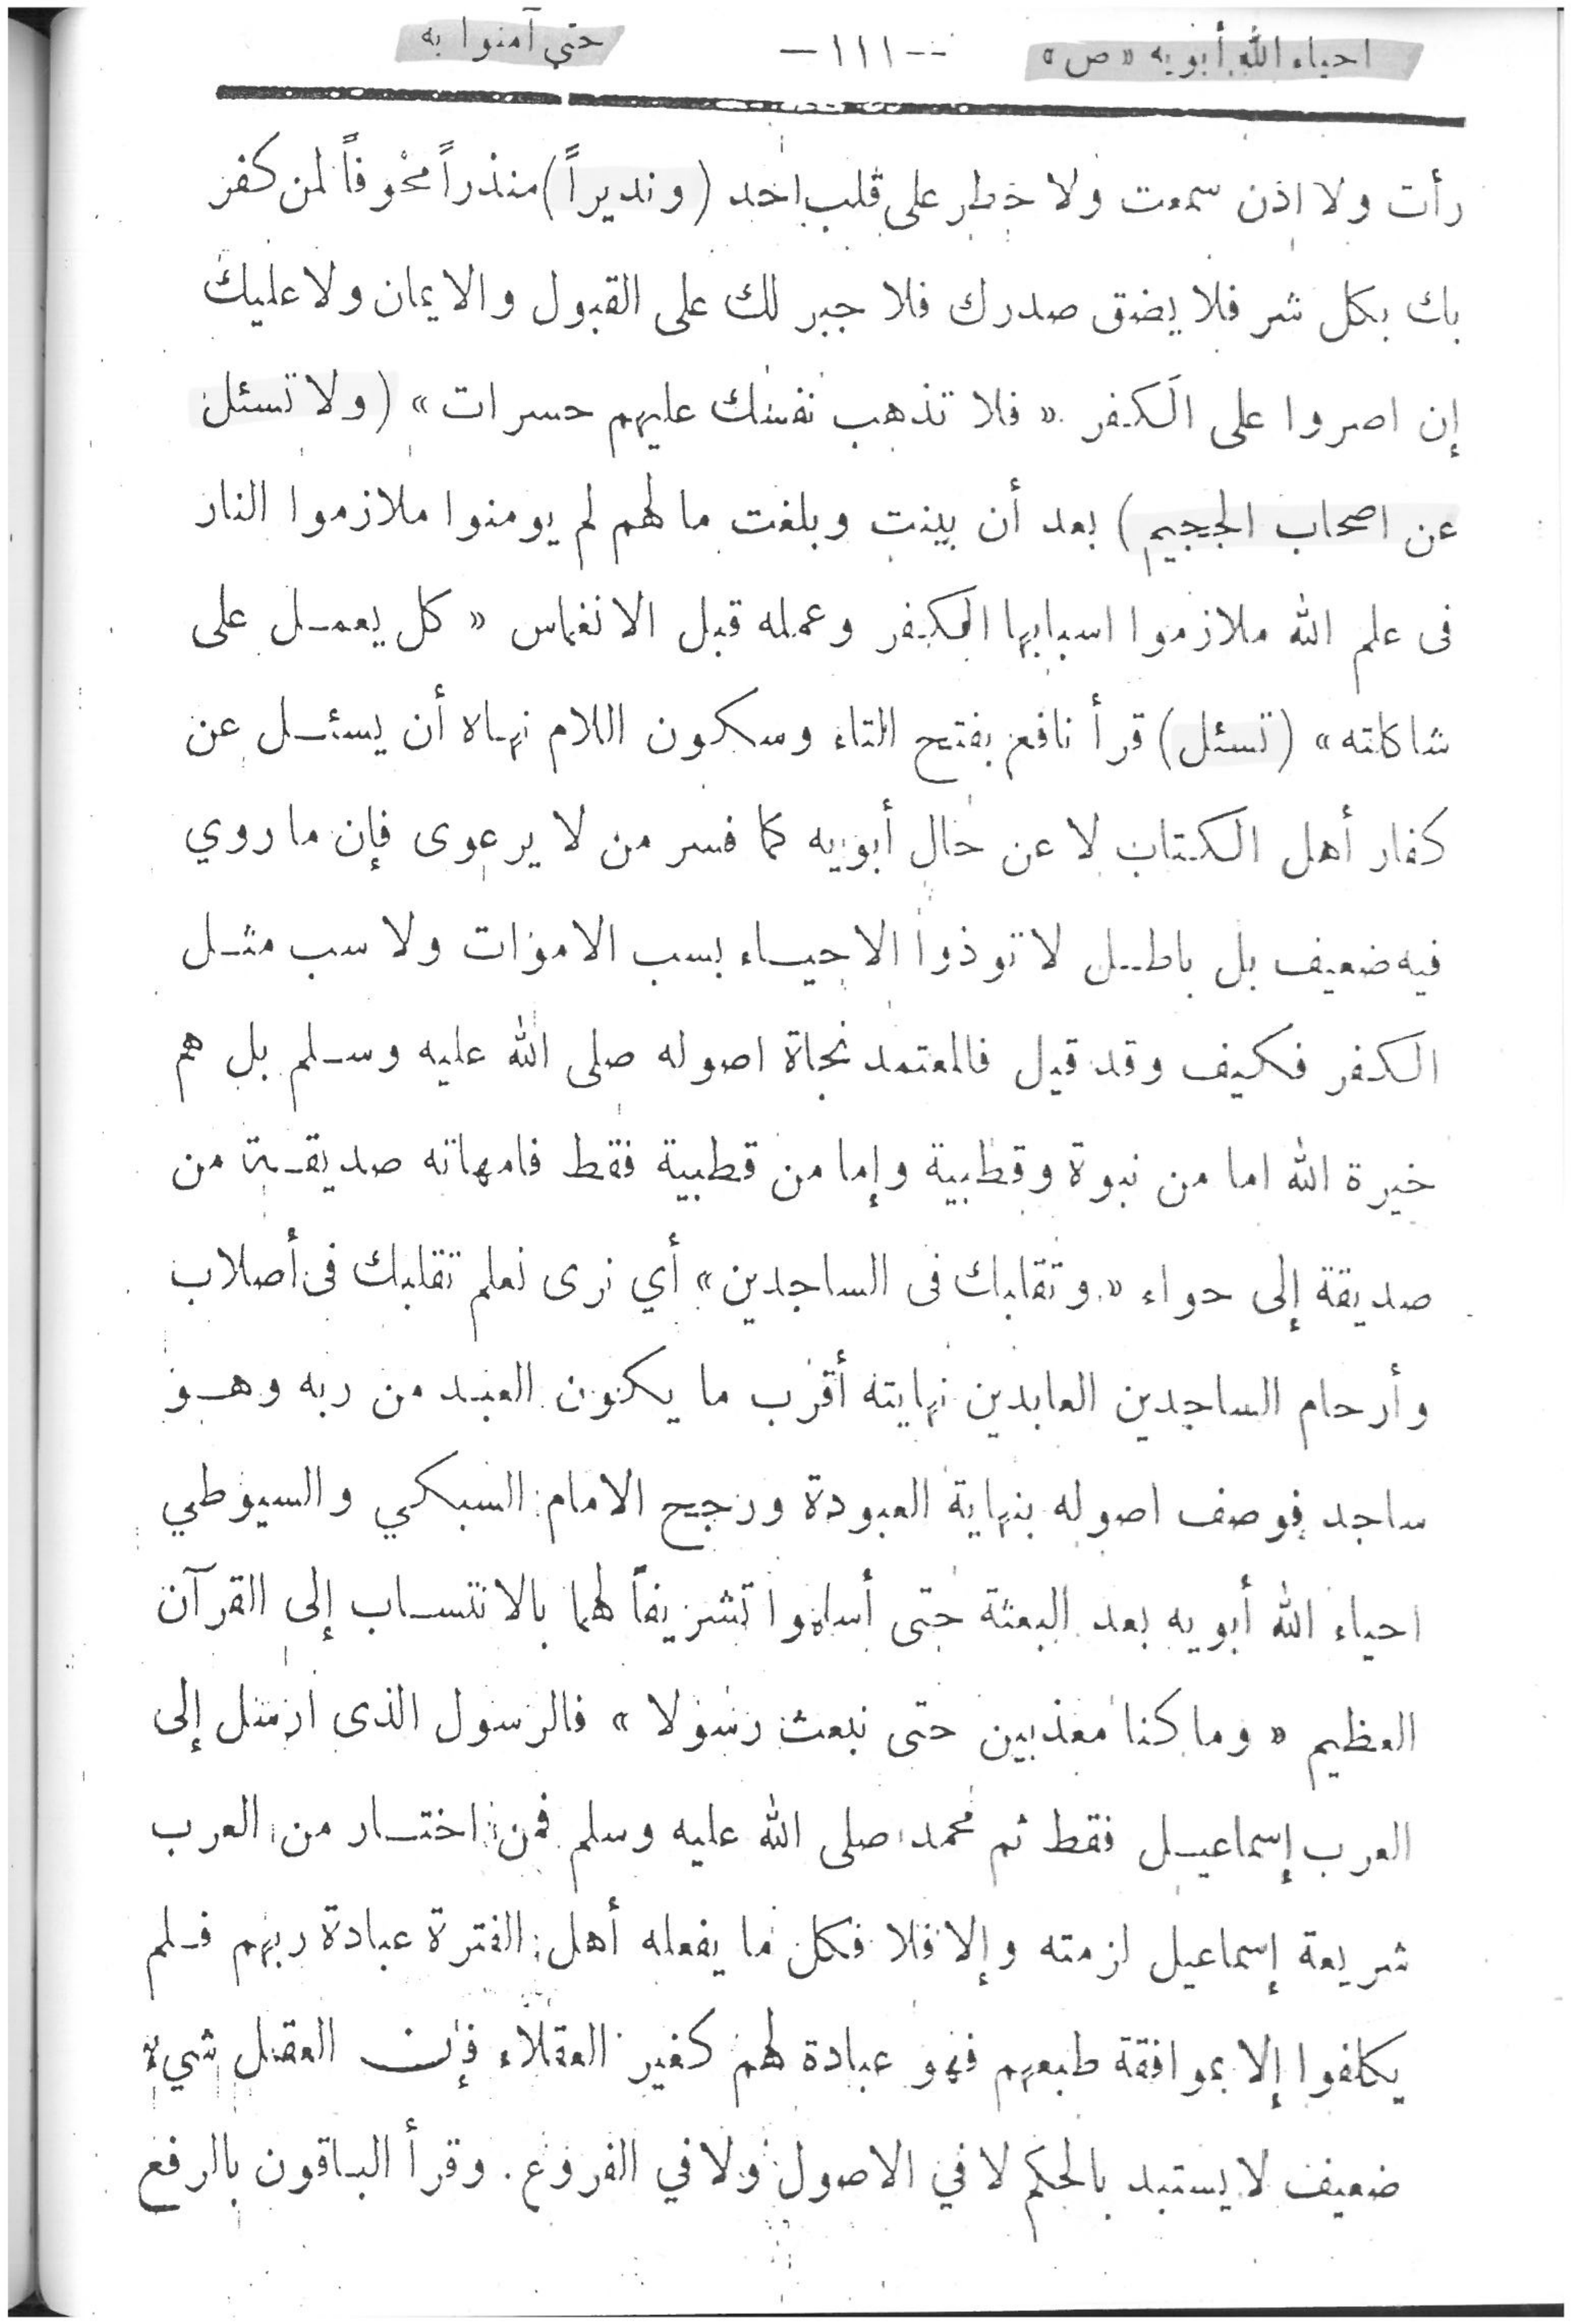 احياء الله أبويه «ص» —١١١— حتى آمنوا به
رأت ولا اذن سمعت ولا خطر على قلب احد (ونديراً) منذراً مخوفاً لمن كفر
بك بكل شر فلا يضق صدرك فلا جبر لك على القبول والايمان ولا عليك
إن اصروا على الكفر «فلا تذهب نفسك عليهم حسرات» (ولا تسئل
عن اصحاب الججيم) بعد أن بينت وبلغت ما لهم لم يومنوا ملازموا النار
فى علم الله ملازموا اسبابها الكفر وعمله قبل الانغماس «كل يعمل على
شاكلته» (تسئل) قرأ نافع بفتح التاء وسكون اللام نهاه أن يسئل عن
كفار أهل الكتاب لا عن حال أبويه كما فسر من لا يرعوى فإن ما روي
فيه ضعيف بل باطل لا توذوا الاحياء بسب الاموات ولا سب مثل
الكفر فكيف وقد قيل فالمعتمد نجاة اصوله صلى الله عليه وسلم بل هم
خيرة الله اما من نبوة وقطبية وإما من قطبية فقط فامهاته صديقة من
صديقة إلى حواء «وتقلبك فى الساجدين» أي نرى نعلم تقلبك فى أصلاب
وأرحام الساجدين العابدين نهايته أقرب ما يكون العبد من ربه وهو
ساجد فوصف اصوله بنهاية العبودة ورجح الامام السبكي والسيوطي
احياء الله أبويه بعد البعثة حتى أسلموا تشريفاً لهما بالانتساب إلى القرآن
العظيم «وما كنا معذبين حتى نبعث رسولا» فالرسول الذى ارسل إلى
العرب إسماعيل فقط ثم محمد صلى الله عليه وسلم فمن اختار من العرب
شريعة إسماعيل لزمته وإلا فلا فكل ما يفعله أهل الفترة عبادة ربهم فلم
يكلفوا إلا بموافقة طبعهم فهو عبادة لهم كغير العقلاء فإن العقل شيء
ضعيف لا يستبد بالحكم لا في الاصول ولا في الفروع. وقرأ الباقون بالرفع